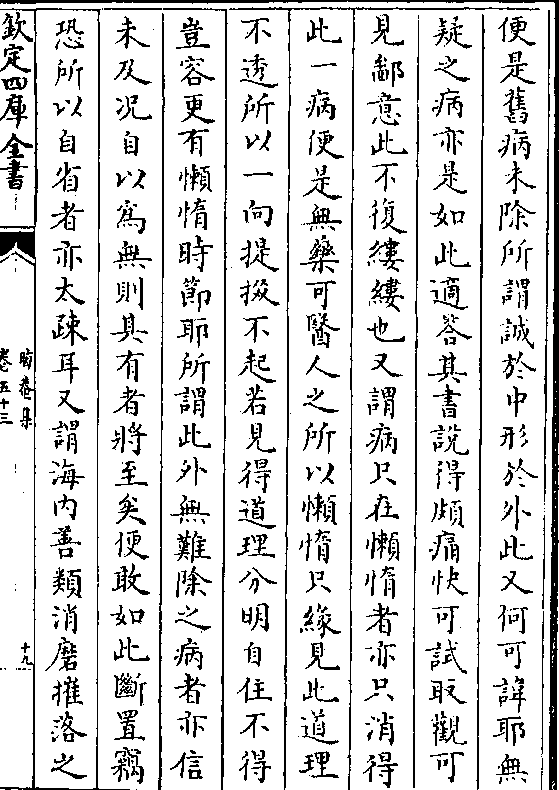 便是舊病未除所謂誠於中形於外此又何可諱耶無
疑之病亦是如此適答其書說得頗痛快可試取觀可
見鄙意此不復縷縷也又謂病只在懶惰者亦只消得
此一病便是無藥可醫人之所以懶惰只緣見此道理
不透所以一向提掇不起若見得道理分明自住不得
豈容更有懶惰時節耶所謂此外無難除之病者亦信
未及况自以為無則其有者將至矣便敢如此斷置竊
恐所以自省者亦太踈耳又謂海内善類消磨摧落之
欽定四庫全書
晦菴集
卷五十三
十九